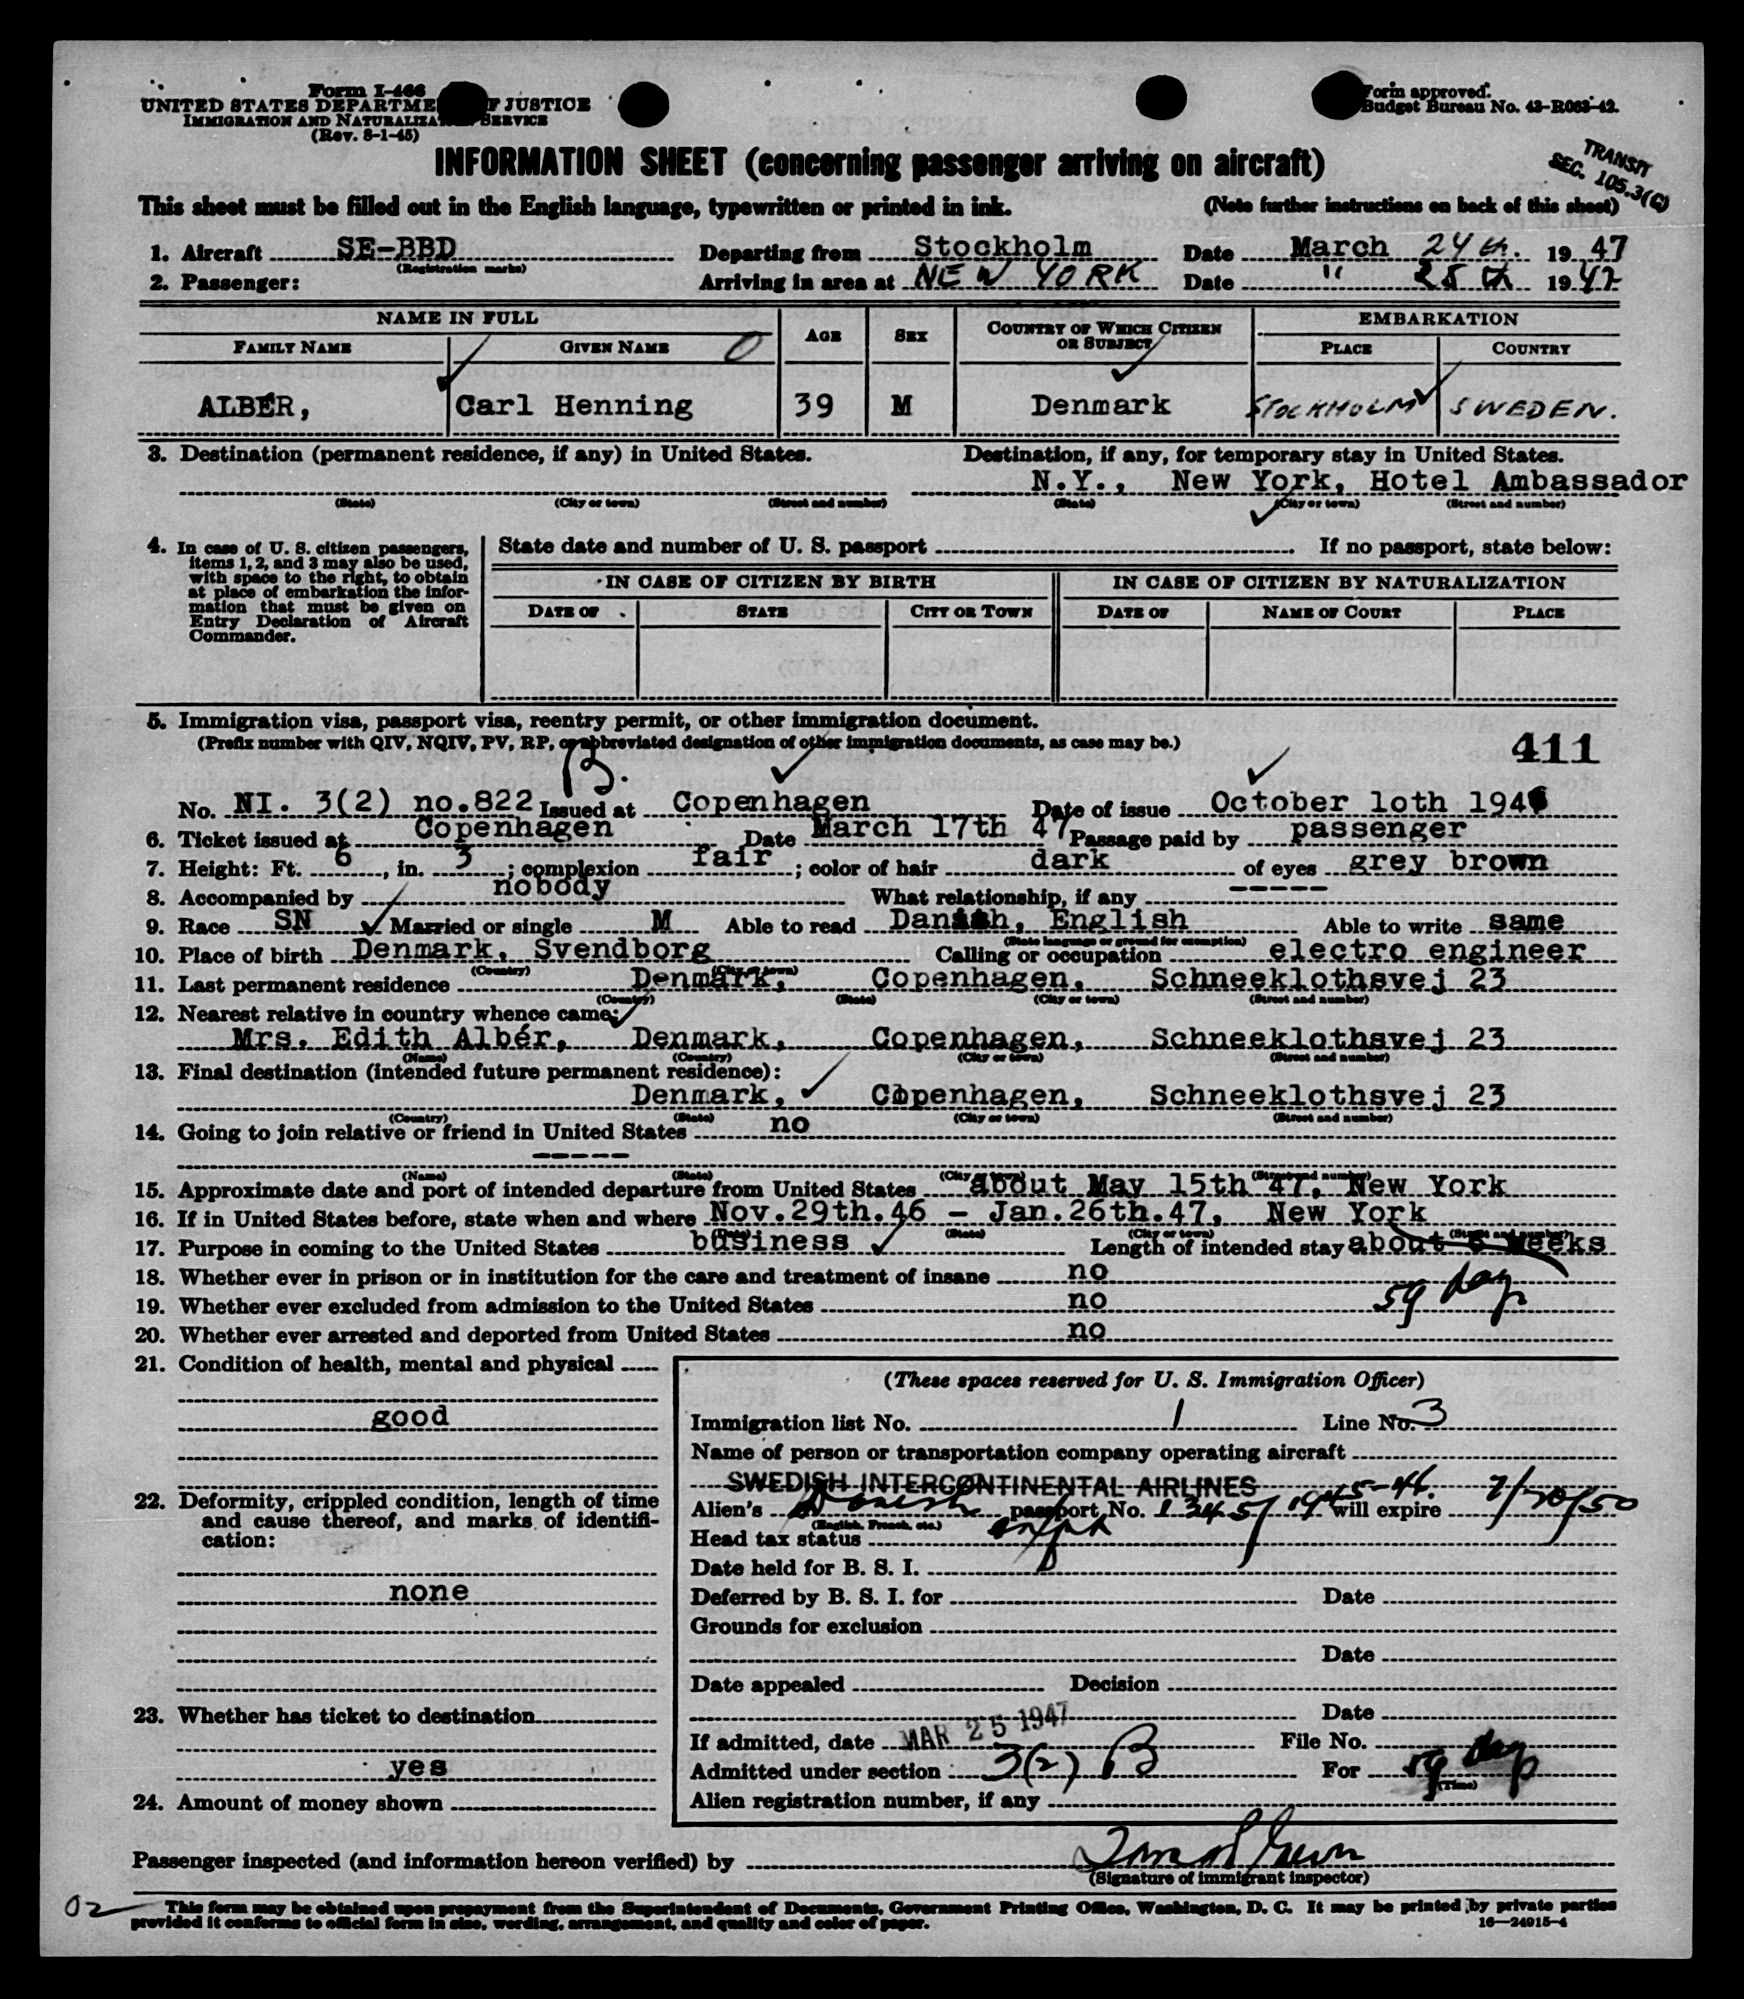 Form I-466
UNITED STATES DEPARTME F JUSTICE
IMMIGRATION AND NATURALIZA SERVICE
(Rev. 8-1-45)
Form approved.
Budget Bureau No. 43-R063-42.
INFORMATION SHEET (concerning passenger arriving on aircraft)
TRANSIT
SEC. 105.3(C)
This sheet must be filled out in the English language, typewritten or printed in ink. (Note further instructions on back of this sheet)
1. Aircraft SE-BBD Departing from Stockholm Date March 24th. 1947
(Registration marks)
2. Passenger: Arriving in area at NEW YORK Date " 25th 1947
NAME IN FULL AGE SEX COUNTRY OF WHICH CITIZEN OR SUBJECT EMBARKATION
FAMILY NAME GIVEN NAME 0 PLACE COUNTRY
ALBÉR, Carl Henning 39 M Denmark STOCKHOLM SWEDEN.
3. Destination (permanent residence, if any) in United States. Destination, if any, for temporary stay in United States.
N.Y., New York, Hotel Ambassador
(State) (City or town) (Street and number) (State) (City or town) (Street and number)
4. In case of U. S. citizen passengers, items 1, 2, and 3 may also be used, with space to the right, to obtain at place of embarkation the information that must be given on Entry Declaration of Aircraft Commander.
State date and number of U. S. passport . If no passport, state below:
IN CASE OF CITIZEN BY BIRTH IN CASE OF CITIZEN BY NATURALIZATION
DATE OF STATE CITY OR TOWN DATE OF NAME OF COURT PLACE
5. Immigration visa, passport visa, reentry permit, or other immigration document.
(Prefix number with QIV, NQIV, PV, RP, or abbreviated designation of other immigration documents, as case may be.)
411
B.
No. NI. 3(2) no.822 Issued at Copenhagen Date of issue October 1oth 1946
6. Ticket issued at Copenhagen Date March 17th 47 Passage paid by passenger
7. Height: Ft. 6, in. 3; complexion fair; color of hair dark of eyes grey brown
8. Accompanied by nobody What relationship, if any -----
9. Race SN Married or single M Able to read Danish, English Able to write same
(State language or ground for exemption)
10. Place of birth Denmark, Svendborg Calling or occupation electro engineer
(Country) (City or town)
11. Last permanent residence Denmark, Copenhagen, Schneeklothsvej 23
(Country) (State) (City or town) (Street and number)
12. Nearest relative in country whence came:
Mrs. Edith Albér, Denmark, Copenhagen, Schneeklothsvej 23
(Name) (Country) (City or town) (Street and number)
13. Final destination (intended future permanent residence):
Denmark, Copenhagen, Schneeklothsvej 23
(Country) (State) (City or town) (Street and number)
14. Going to join relative or friend in United States no
-----
(Name) (State) (City or town) (Street and number)
15. Approximate date and port of intended departure from United States about May 15th 47, New York
16. If in United States before, state when and where Nov.29th.46 - Jan.26th.47, New York
(Date) (State) (City or town) (Street and number)
17. Purpose in coming to the United States business Length of intended stay about 6 weeks
59 days
18. Whether ever in prison or in institution for the care and treatment of insane no
19. Whether ever excluded from admission to the United States no
20. Whether ever arrested and deported from United States no
21. Condition of health, mental and physical
good
22. Deformity, crippled condition, length of time and cause thereof, and marks of identification:
none
23. Whether has ticket to destination
yes
24. Amount of money shown
(These spaces reserved for U. S. Immigration Officer)
Immigration list No. 1 Line No. 3
Name of person or transportation company operating aircraft
SWEDISH INTERCONTINENTAL AIRLINES
Alien's Danish passport No. 1345/1945-46. will expire 7/20/50
(English, French, etc.)
Head tax status
Date held for B. S. I.
Deferred by B. S. I. for Date
Grounds for exclusion
Date
Date appealed Decision
Date
If admitted, date MAR 25 1947 File No.
Admitted under section 3(2) B For 59 days
(Time)
Alien registration number, if any
Passenger inspected (and information hereon verified) by
(Signature of immigrant inspector)
02
This form may be obtained upon prepayment from the Superintendent of Documents, Government Printing Office, Washington, D. C. It may be printed by private parties
provided it conforms to official form in size, wording, arrangement, and quality and color of paper.
16—24915-4